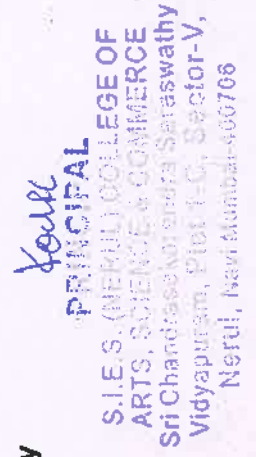 PRINCIPAL
S.I.E.S. (NERUL) COLLEGE OF
ARTS, SCIENCE & COMMERCE
Sri Chandrasekarendra Saraswathy
Vidyapuram, Plot I-C, Sector-V,
Nerul, Navi Mumbai-400706
y